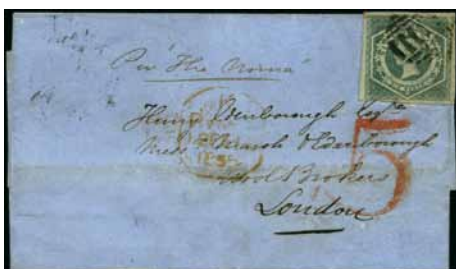 Per "The Norna"
Henry Edenborough Esqre
Marsh Edenborough
Wool Brokers
London
5